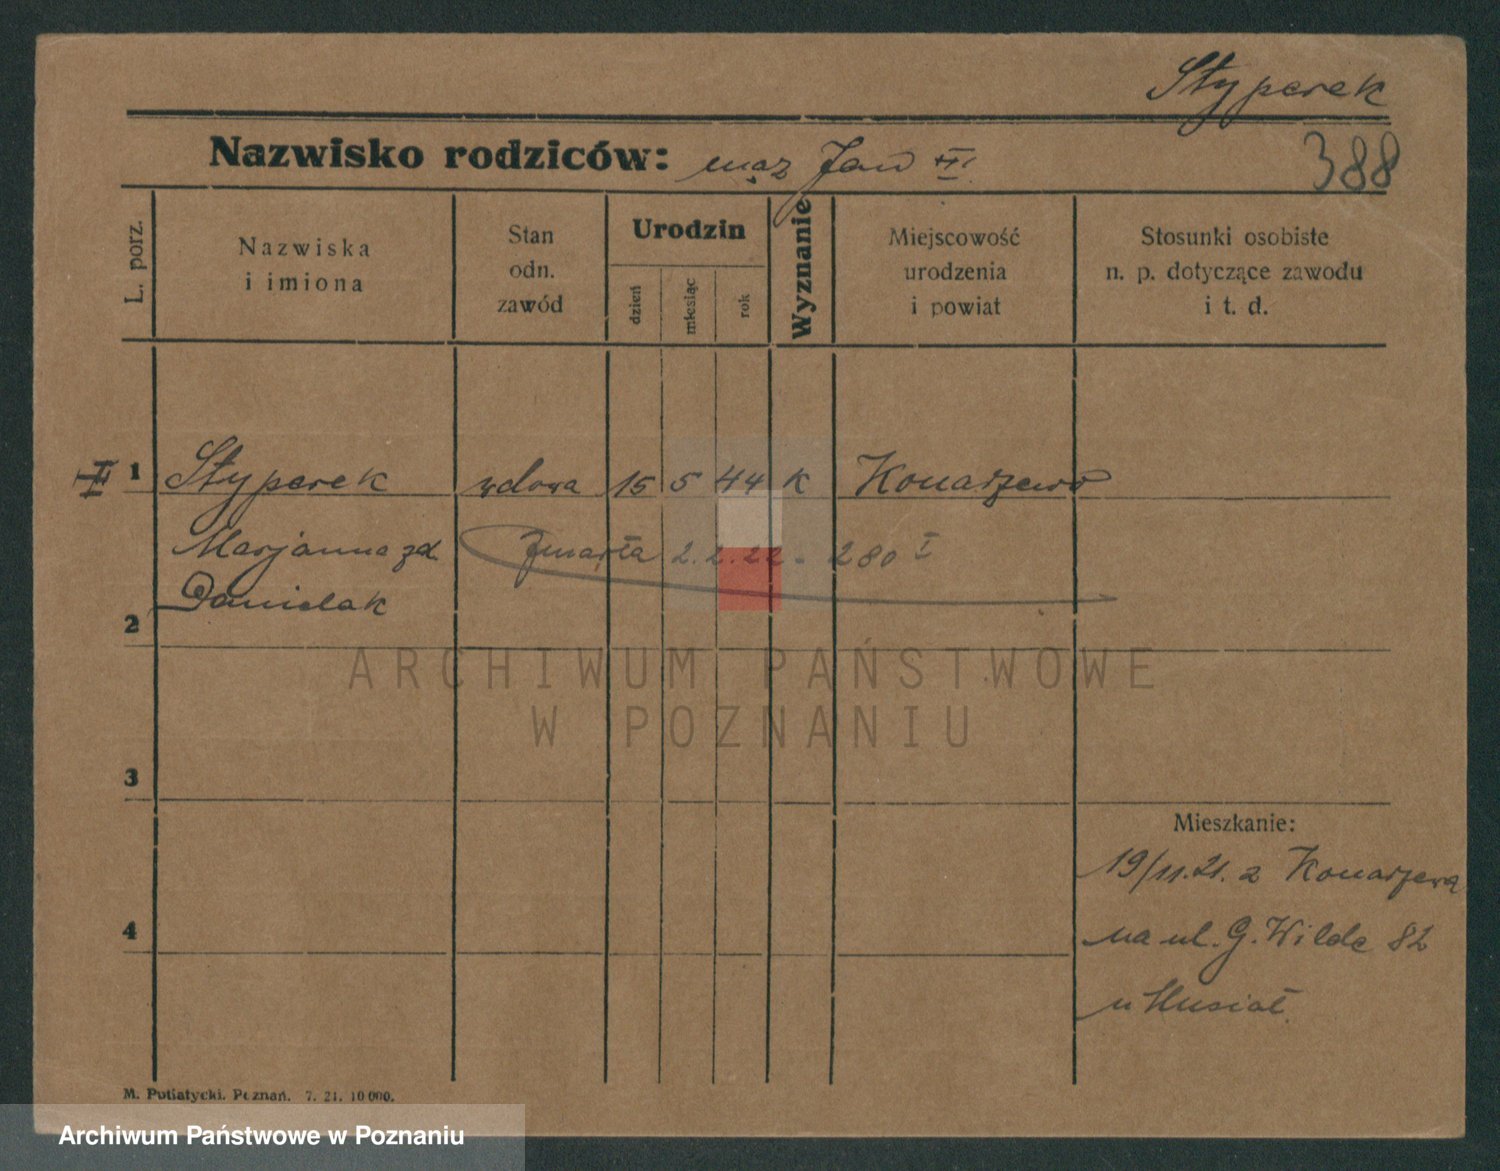 Styperek
Nazwisko rodziców: mąż Jan III
388
L. porz.
Nazwiska
i imiona
Stan
odn.
zawód
Urodzin
dzień
miesiąc
rok
Wyznanie
Miejscowość
urodzenia
i powiat
Stosunki osobiste
n. p. dotyczące zawodu
i t. d.
II 1 Styperek wdowa 15 5 44 K Konarzewo
Marjanna zd zmarła 2.2.22 - 280 I
Danielak
2
ARCHIWUM PAŃSTWOWE
W POZNANIU
3
Mieszkanie:
19/11.21. z Konarzewa
4
na ul. G. Wilde 82
u Musiał
M. Putiatycki. Poznań. 7. 21. 10 000.
Archiwum Państwowe w Poznaniu